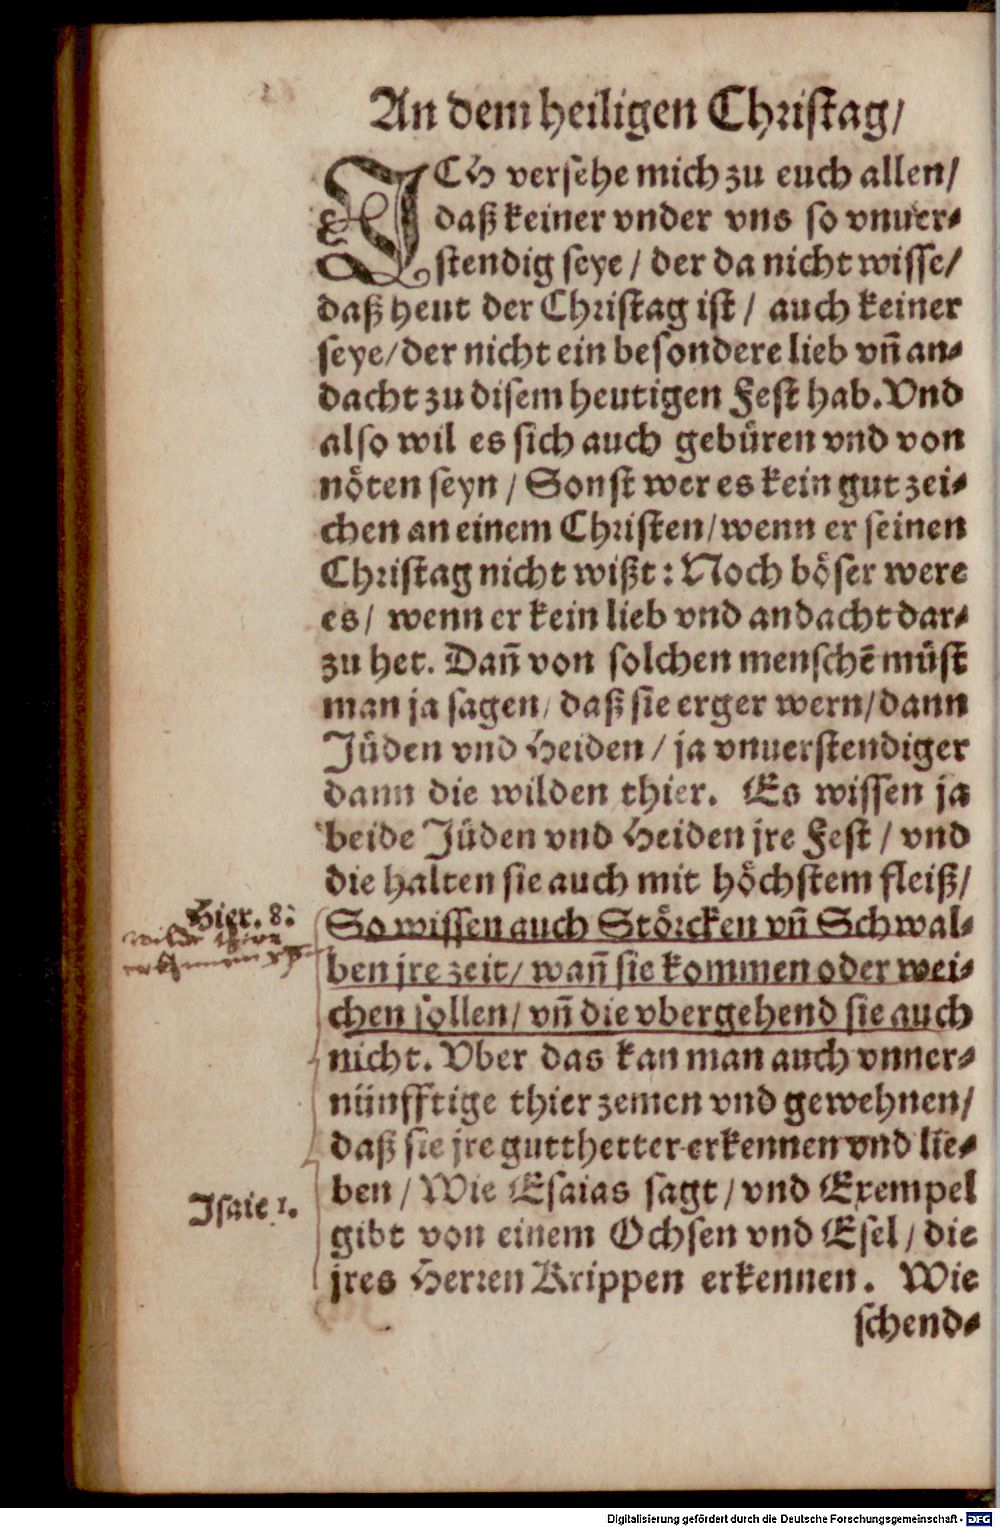 An dem heiligen Christag/
ICH versehe mich zu euch allen/
daß keiner vnder vns so vnuer-
stendig seye / der da nicht wisse/
daß heut der Christag ist / auch keiner
seye/der nicht ein besondere lieb vñ an-
dacht zu disem heutigen Fest hab. Vnd
also wil es sich auch gebüren vnd von
nöten seyn / Sonst wer es kein gut zei-
chen an einem Christen/wenn er seinen
Christag nicht wißt: Noch böser were
es/ wenn er kein lieb vnd andacht dar-
zu het. Dañ von solchen menschē müst
man ja sagen/ daß sie erger wern/dann
Jüden vnd Heiden / ja vnuerstendiger
dann die wilden thier. Es wissen ja
beide Jüden vnd Heiden jre Fest / vnd
die halten sie auch mit höchstem fleiß/
Hier. 8:
wilde thire
erkennen
So wissen auch Störcken vñ Schwal-
ben jre zeit/ wañ sie kommen oder wei-
chen sollen/ vñ die vbergehend sie auch
nicht. Vber das kan man auch vnner-
nünfftige thier zemen vnd gewehnen/
daß sie jre gutthetter erkennen vnd lie-
Isaie 1.
ben / Wie Esaias sagt / vnd Exempel
gibt von einem Ochsen vnd Esel / die
jres Herren Krippen erkennen. Wie
schend-
Digitalisierung gefördert durch die Deutsche Forschungsgemeinschaft - DFG